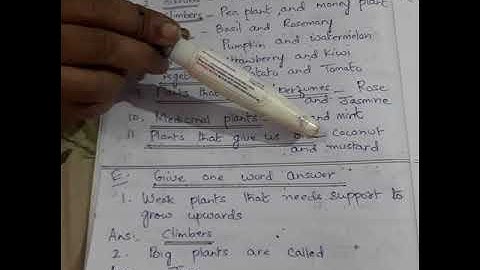 Climbers - Pea plant and money plant
Basil and Rosemary
Pumpkin and watermelon
strawberry and kiwi
Potato and Tomato
Plants that perfumes - Rose
and Jasmine
10. Medicinal plants and mint
11. Plants that give us coconut
and mustard
E. Give one word answer
1. Weak plants that needs support to
grow upwards
Ans: Climbers
2. Big plants are called